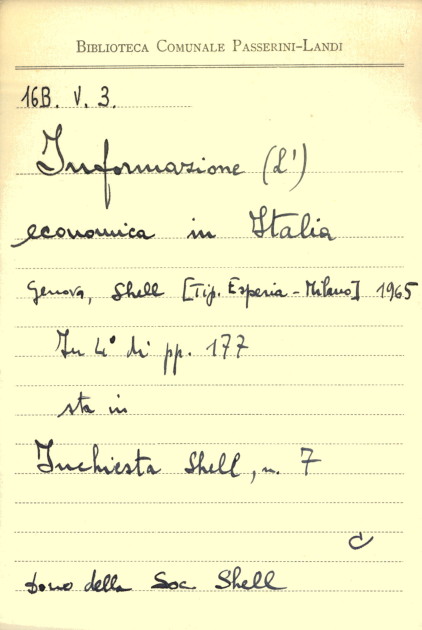 BIBLIOTECA COMUNALE PASSERINI-LANDI
16B. V. 3.
Informazione (L')
economica in Italia
Genova, Shell [Tip. Esperia - Milano] 1965
In 4° di pp. 177
sta in
Inchiesta Shell, n. 7
C
Dono della Soc Shell